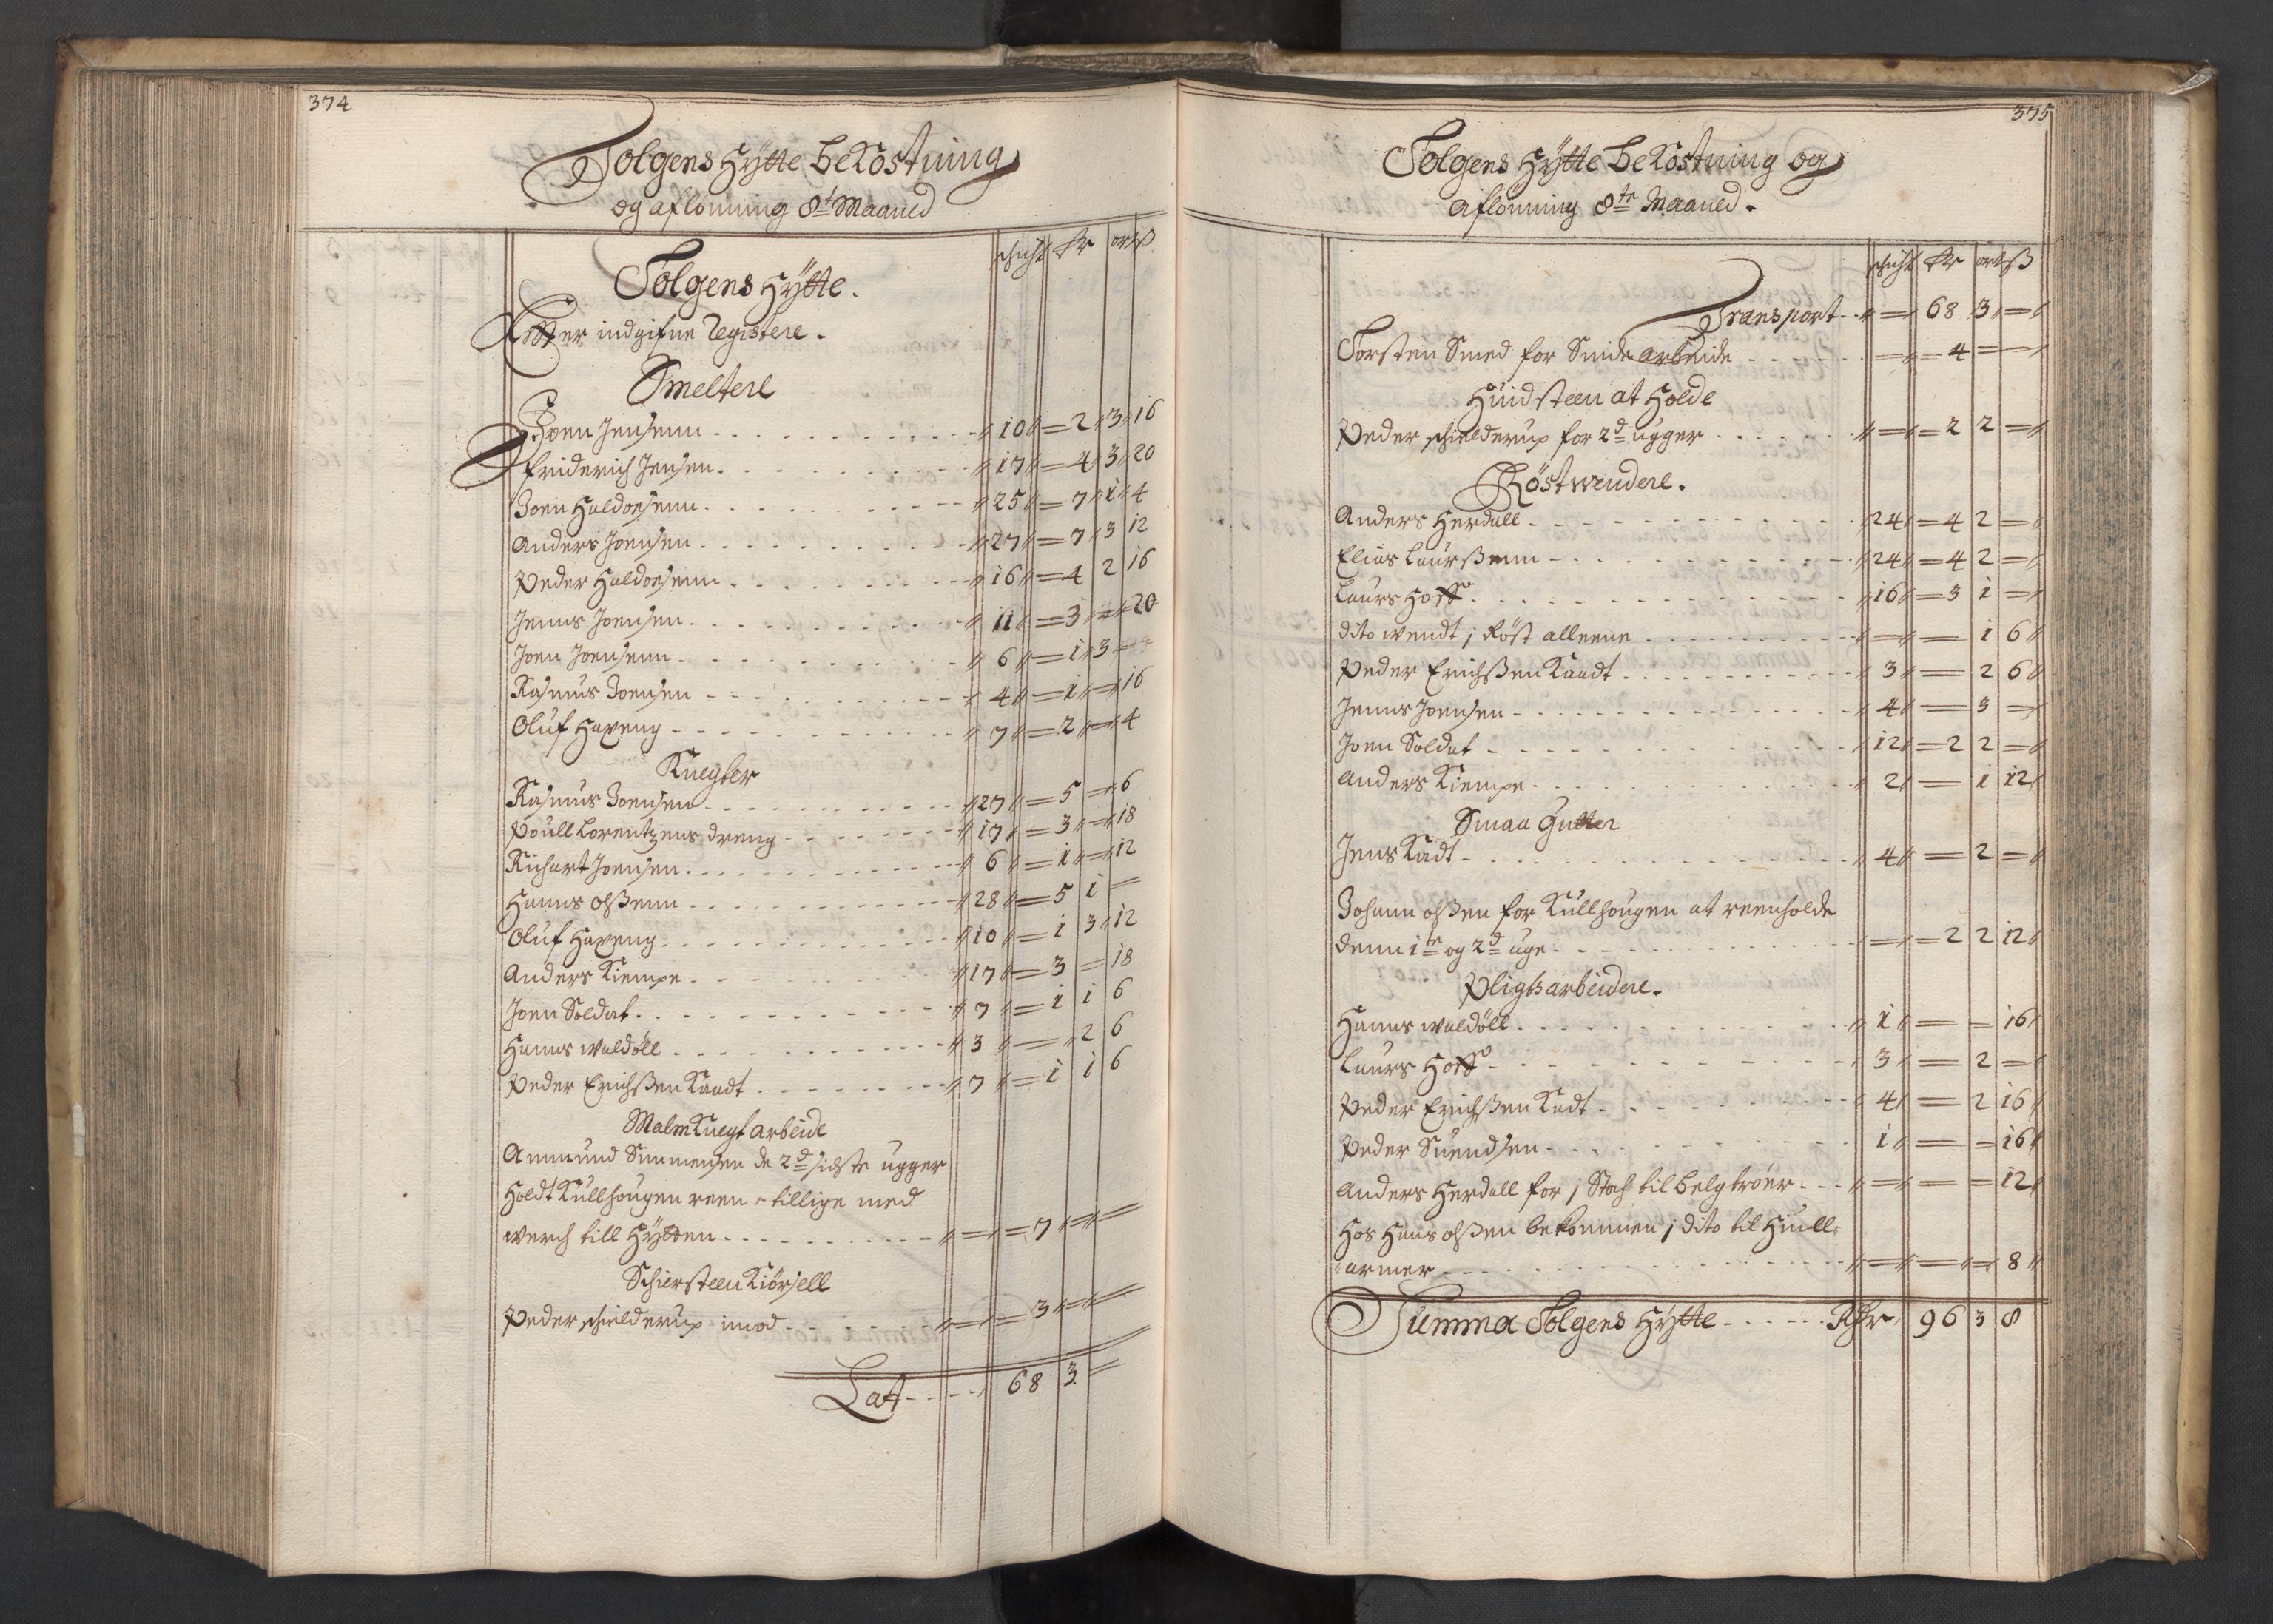 374
Tolgens Hÿtte bekostning
og aflönning 8te Maaned
schicht Rr ort ß
Tolgens Hÿtte.
Effter indgifne Registere.
Smeltere
Joen Jensenn 10 2 3 16
Friderich Jensen 17 4 3 20
Joen Haldorsenn 25 7 1 4
Anders Joensen 27 7 3 12
Peder Haldorsenn 16 4 2 16
Jenns Joensen 11 3 = 20
Joen Joensenn 6 1 3 =
Rasmus Joensen 4 1 = 16
Oluf Haveng 7 2 = 4
Knegter
Rasmus Joensen 27 5 = 6
Poull Lorentzens dreng 17 3 = 18
Richart Joensen 6 1 = 12
Hanns olßenn 28 5 1 =
Oluf Haveng 10 1 3 12
Anders Kiempe 17 3 = 18
Joen Soldat 7 1 1 6
Hanns waldöll 3 = 2 6
Peder Erichßen Kaadt 7 1 1 6
Malm Knegt arbeide
Ammund Simmensen de 2de sidste ugger
Holdt Kullhougen reen tillige med
werch till Hÿtten = 7 = =
Schiersteen Kiörsell
Peder schielderup imod = 3 = =
Lat 68 3 =
375
Tolgens Hÿtte bekostning og
aflönning 8te Maaned.
schicht Rr ort ß
Transport = 68 3 =
Torsten Smed for Smide arbeide = 4 = =
Huidsteen at Holde
Peder schielderup for 2de ugger = 2 2 =
Röstwendere.
Anders Herdall 24 4 2 =
Elias Laurßenn 24 4 2 =
Laurs Hoff 16 3 1 =
dito wendt j Röst alleene = = 1 6
Peder Erichßen Kaadt 3 = 2 6
Jenns Joensen 4 = 3 =
Joen Soldat 12 2 2 =
Anders Kiempe 2 = 1 12
Smaa Gutter
Jens Kadt 4 = 2 =
Johann olßen for Kullhougen at reenholde
denn 1te og 2de uge = 2 2 12
Pligtsarbeidere.
Hanns waldöll 1 = = 16
Laurs Hoff 3 = 2 =
Peder Erichßen Kadt 4 = 2 16
Peder Suendsen 1 = = 16
Anders Herdall for j Stoch til belgtröer = = = 12
Hos Hans olßen bekommen j dito til Hiull=
=armer = = = 8
Summa Tolgens Hÿtte Rdr 96 3 8